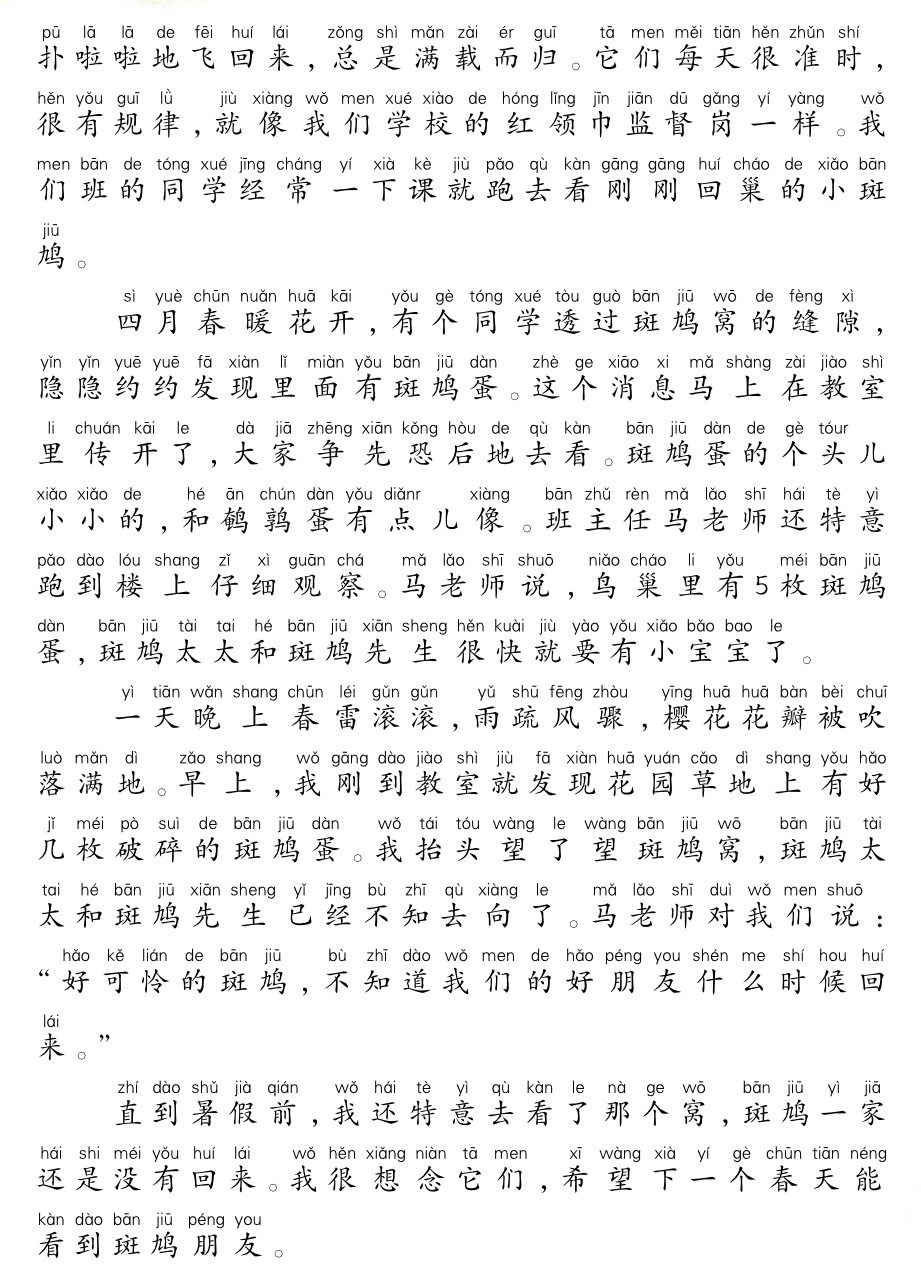 pū lā lā de fēi huí lái zǒng shì mǎn zài ér guī tā men měi tiān hěn zhǔn shí
扑啦啦地飞回来，总是满载而归。它们每天很准时，
hěn yǒu guī lǜ jiù xiàng wǒ men xué xiào de hóng lǐng jīn jiān dū gǎng yí yàng wǒ
很有规律，就像我们学校的红领巾监督岗一样。我
men bān de tóng xué jīng cháng yí xià kè jiù pǎo qù kàn gāng gāng huí cháo de xiǎo bān
们班的同学经常一下课就跑去看刚刚回巢的小斑
jiū
鸠。
sì yuè chūn nuǎn huā kāi yǒu gè tóng xué tòu guò bān jiū wō de fèng xì
四月春暖花开，有个同学透过斑鸠窝的缝隙，
yǐn yǐn yuē yuē fā xiàn lǐ miàn yǒu bān jiū dàn zhè ge xiāo xi mǎ shàng zài jiào shì
隐隐约约发现里面有斑鸠蛋。这个消息马上在教室
li chuán kāi le dà jiā zhēng xiān kǒng hòu de qù kàn bān jiū dàn de gè tóur
里传开了，大家争先恐后地去看。斑鸠蛋的个头儿
xiǎo xiǎo de hé ān chún dàn yǒu diǎnr xiàng bān zhǔ rèn mǎ lǎo shī hái tè yì
小小的，和鹌鹑蛋有点儿像。班主任马老师还特意
pǎo dào lóu shang zǐ xì guān chá mǎ lǎo shī shuō niǎo cháo li yǒu méi bān jiū
跑到楼上仔细观察。马老师说，鸟巢里有5枚斑鸠
dàn bān jiū tài tai hé bān jiū xiān sheng hěn kuài jiù yào yǒu xiǎo bǎo bao le
蛋，斑鸠太太和斑鸠先生很快就要有小宝宝了。
yì tiān wǎn shang chūn léi gǔn gǔn yǔ shū fēng zhòu yīng huā huā bàn bèi chuī
一天晚上春雷滚滚，雨疏风骤，樱花花瓣被吹
luò mǎn dì zǎo shang wǒ gāng dào jiào shì jiù fā xiàn huā yuán cǎo dì shang yǒu hǎo
落满地。早上，我刚到教室就发现花园草地上有好
jǐ méi pò suì de bān jiū dàn wǒ tái tóu wàng le wàng bān jiū wō bān jiū tài
几枚破碎的斑鸠蛋。我抬头望了望斑鸠窝，斑鸠太
tai hé bān jiū xiān sheng yǐ jīng bù zhī qù xiàng le mǎ lǎo shī duì wǒ men shuō
太和斑鸠先生已经不知去向了。马老师对我们说：
hǎo kě lián de bān jiū bù zhī dào wǒ men de hǎo péng you shén me shí hou huí
“好可怜的斑鸠，不知道我们的好朋友什么时候回
lái
来。”
zhí dào shǔ jià qián wǒ hái tè yì qù kàn le nà ge wō bān jiū yì jiā
直到暑假前，我还特意去看了那个窝，斑鸠一家
hái shi méi yǒu huí lái wǒ hěn xiǎng niàn tā men xī wàng xià yí gè chūn tiān néng
还是没有回来。我很想念它们，希望下一个春天能
kàn dào bān jiū péng you
看到斑鸠朋友。